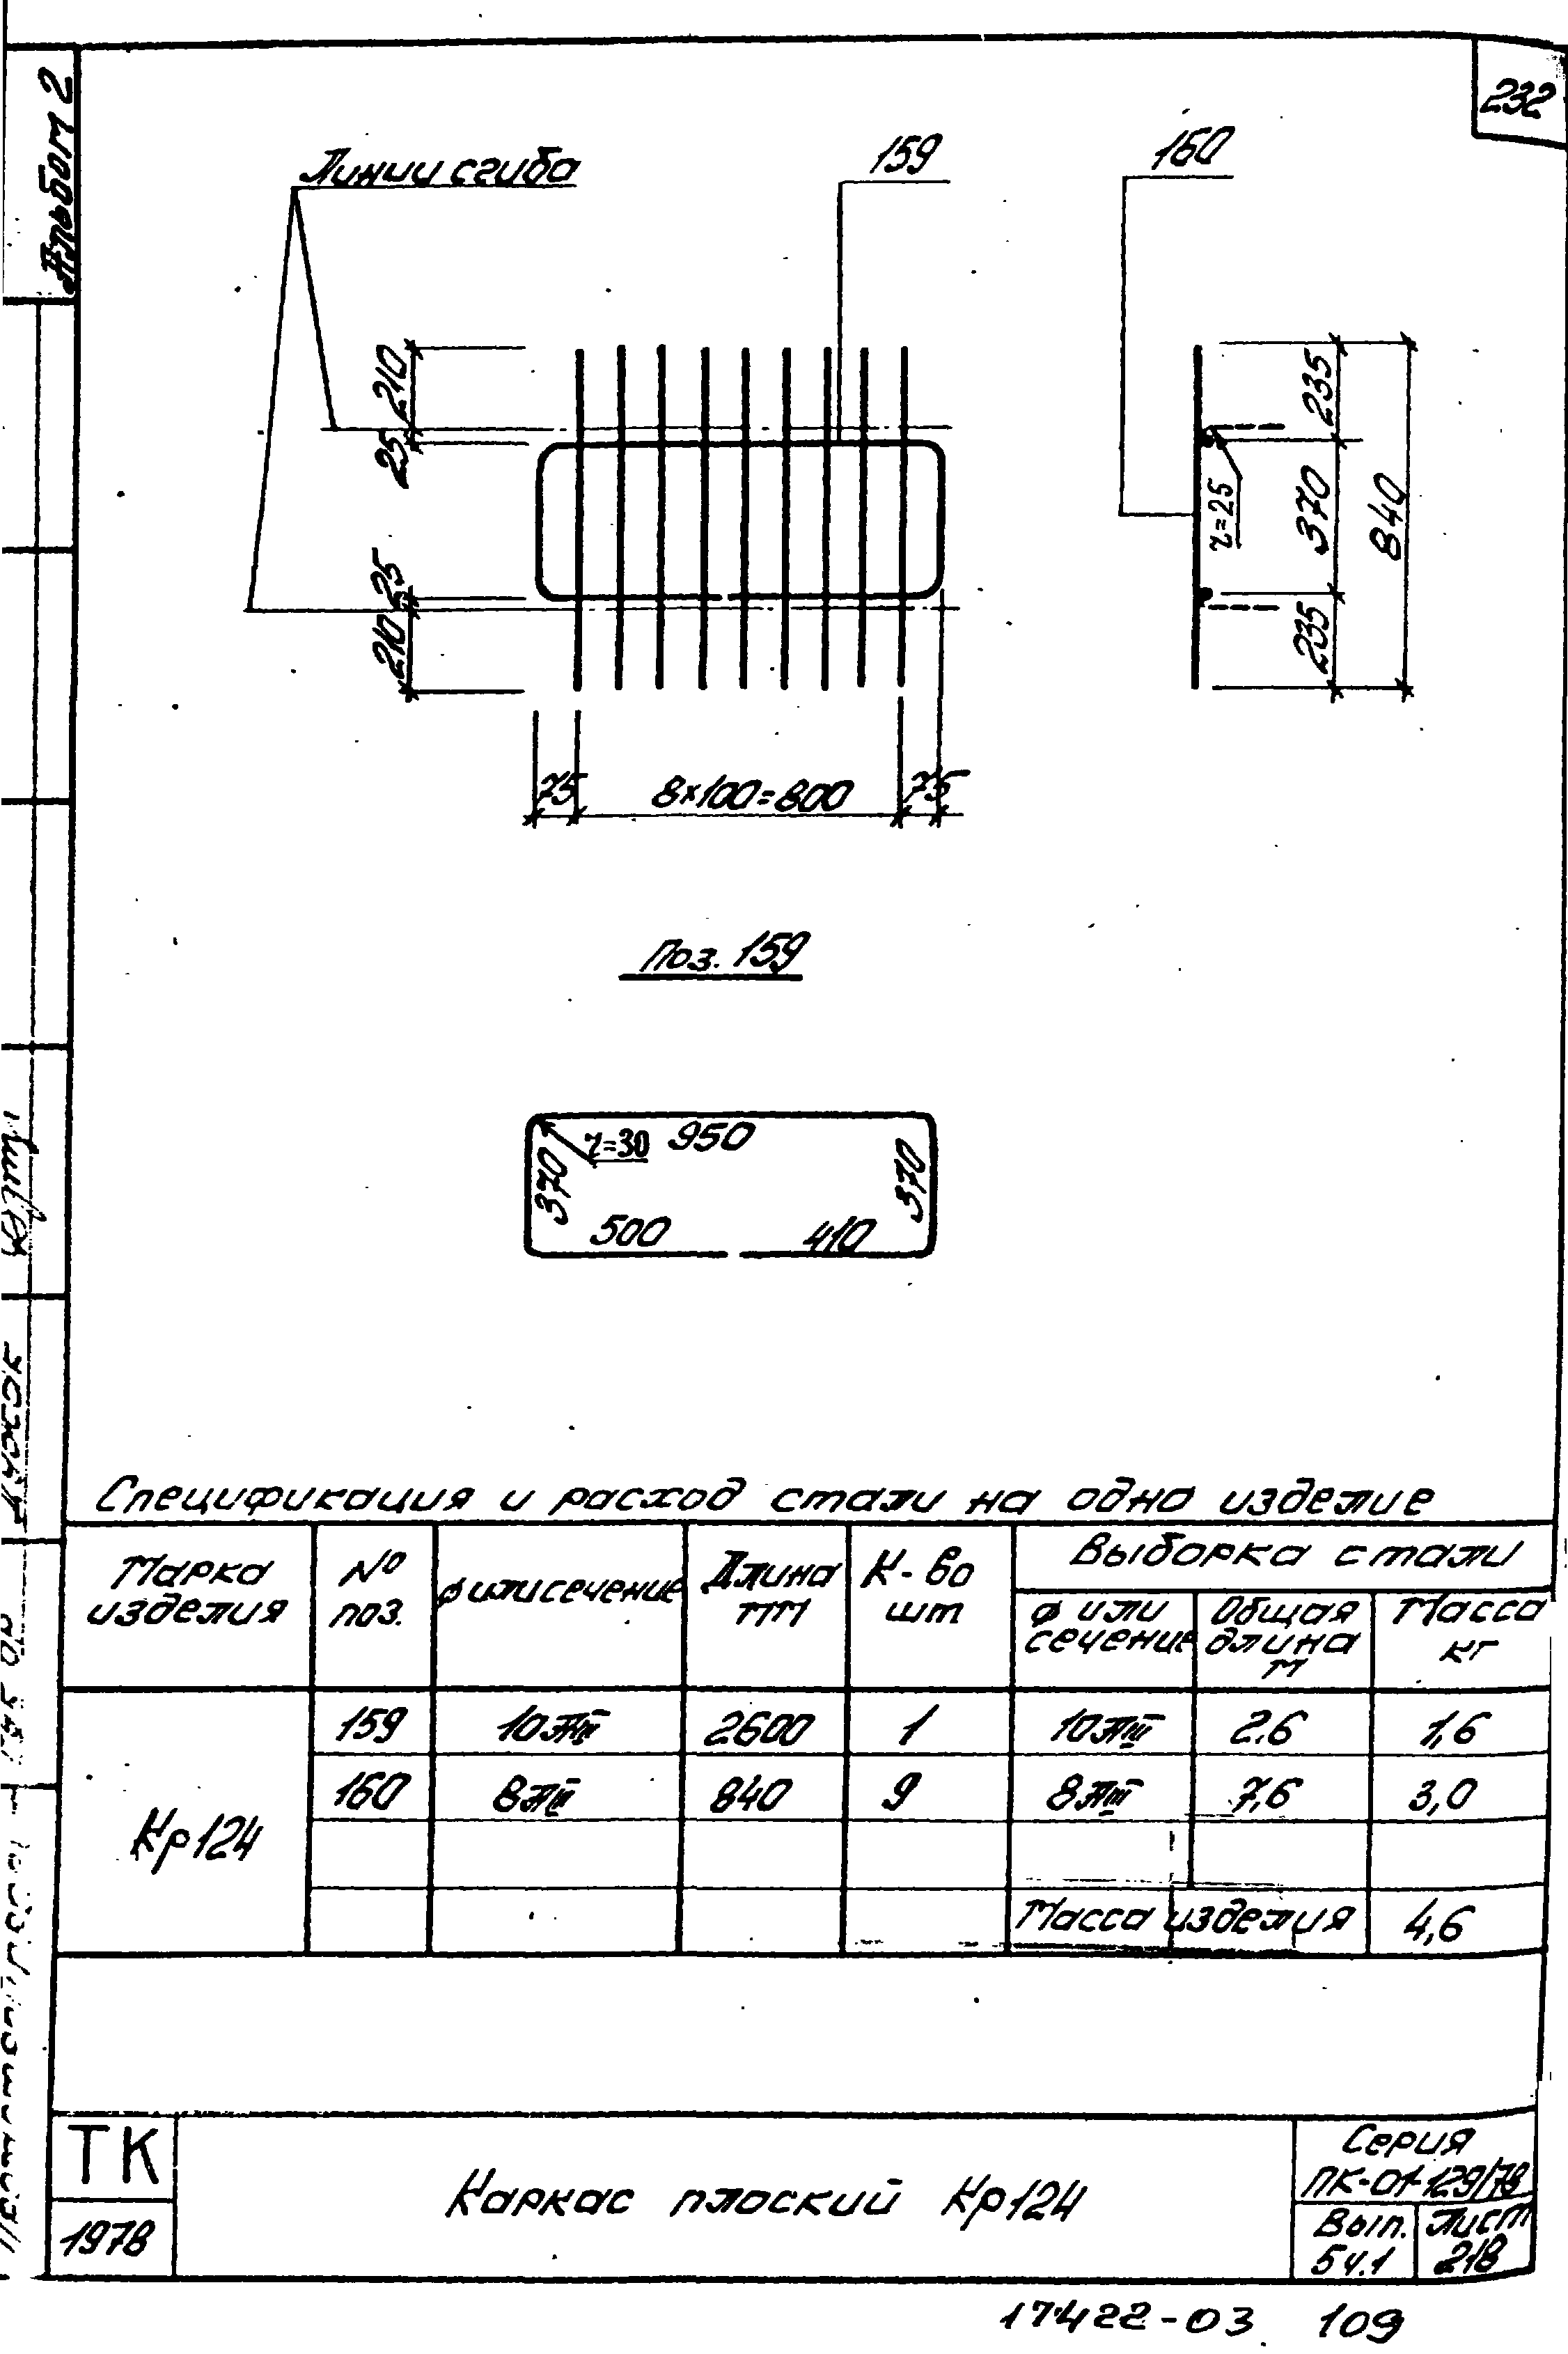 Альбом 2
232
Линии сгиба
159
160
210
25
25
210
75
8×100=800
75
235
370
235
840
r=25
Поз. 159
r=30
950
370
370
500
410
Спецификация и расход стали на одно изделие
Марка изделия
№ поз.
φ или сечение
Длина мм
К-во шт
Выборка стали
φ или сечение
Общая длина м
Масса кг
Кр124
159 10АIII 2600 1 10АIII 2.6 1,6
160 8АIII 840 9 8АIII 7,6 3,0
Масса изделия 4,6
ТК
1978
Каркас плоский Кр124
Серия
ПК-01-129/78
Вып. 5ч.1
Лист 218
17422-03 109